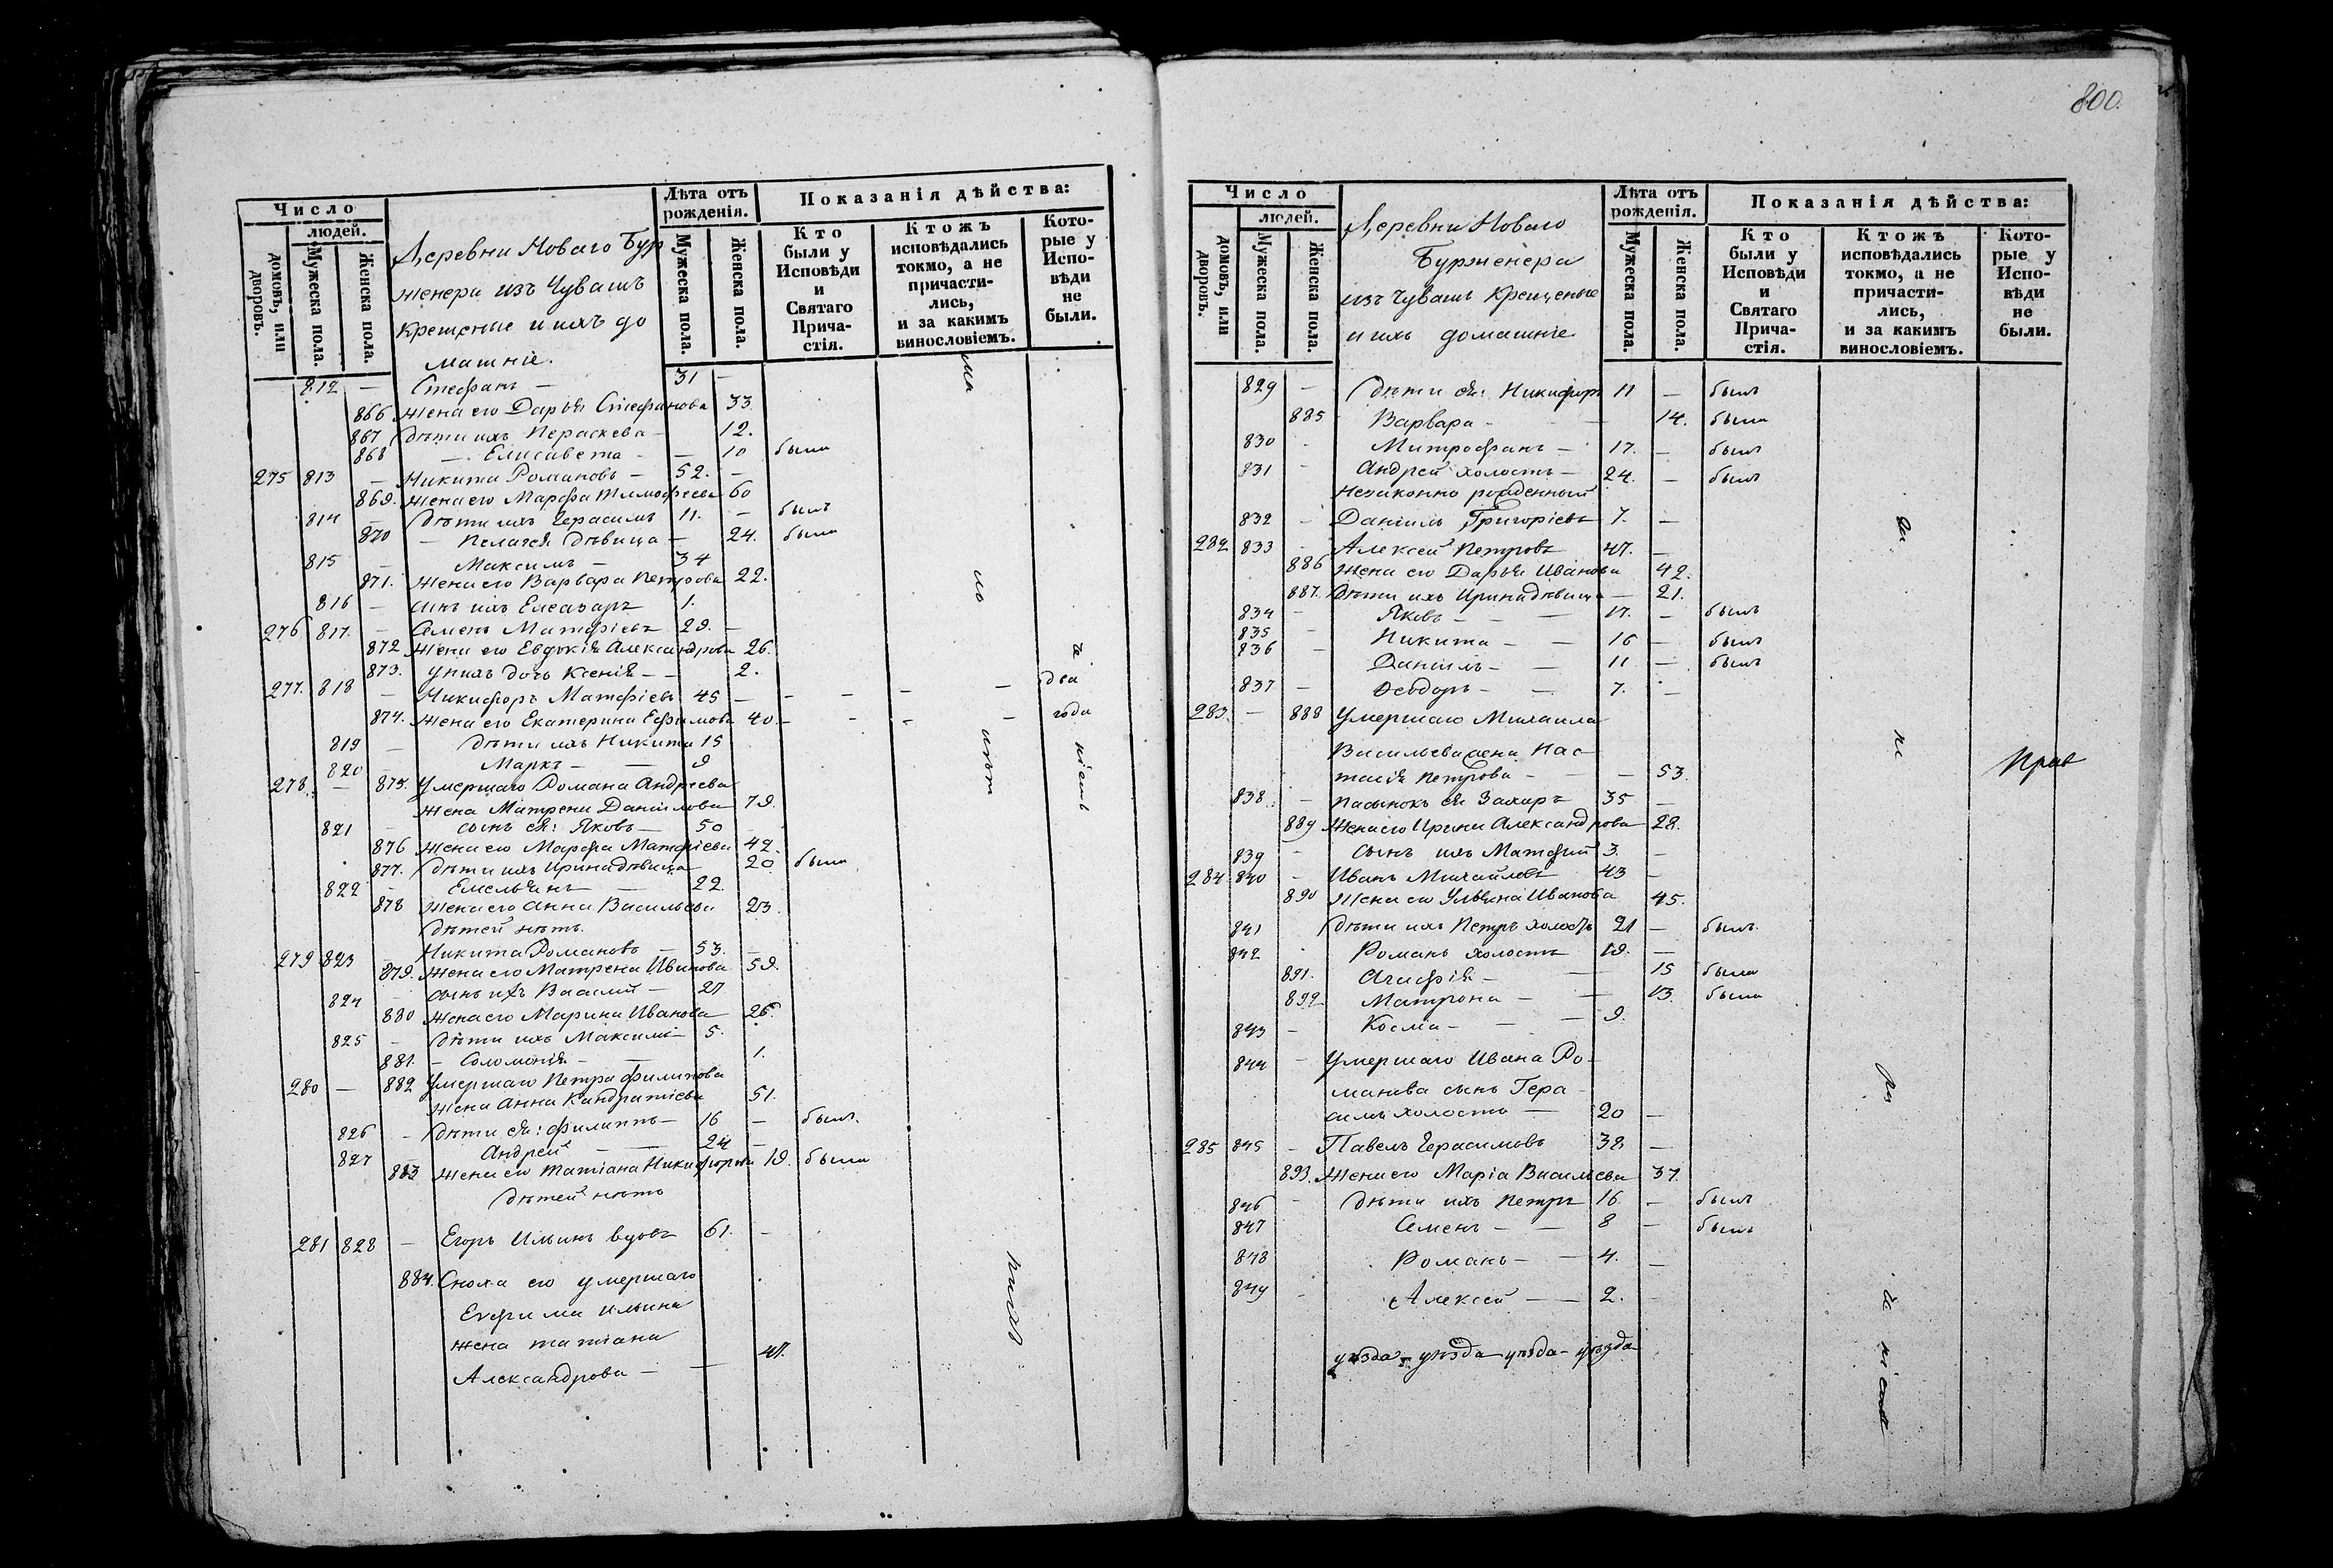 800.
Число
людей.
домовъ, или дворовъ.
Мужеска пола.
Женска пола.
Деревни Новаго Бур
женера изъ Чувашъ
крещеные и ихъ до
машніе.
Лѣта отъ рожденія.
Мужеска пола.
Женска пола.
Показанія дѣйства:
Кто были у Исповѣди и Святаго Причастія.
Ктожъ исповѣдались токмо, а не причастились, и за какимъ винословіемъ.
Которые у Исповѣди не были.
812 — Стефанъ — 31 —
866 жена его Дарья Стефанова 33.
867 Дѣти ихъ Пераскева — 12.
868 — Елисавета — — 10 была
275 813 — Никита Романовъ — 52. —
869. жена его Марфа Тимофеева 60
814 — Дѣти ихъ Герасимъ 11. — былъ
870 — Пелагея дѣвица — 24. была
815 — Максимъ — 34
871. жена его Варвара Петрова 22.
816 — сынъ ихъ Елеазаръ 1.
276 817. — Семенъ Матфіевъ 29. —
872 жена его Евдокія Александрова 26.
873. у нихъ дочь Ксенія — — 2.
277. 818 — Никифоръ Матфіевъ 45 — — — — — два
874. жена его Екатерина Ефимова 40. — — — — года
819 — Дѣти ихъ Никита 15
820 — Маркъ — — 9
278. — 875. Умершаго Романа Андреева
жена Матрена Даніилова 79.
821 — сынъ ея: Яковъ — 50 —
876 жена его Марфа Матфіева 42.
877. Дѣти ихъ Ирина дѣвица 20 была
822 — Емельянъ — 22.
878 жена его Анна Васильева 23.
Дѣтей нѣтъ.
279 823 — Никита Романовъ — 53. —
879. жена его Матрена Иванова 59.
824 — сынъ ихъ Василій — 27
880 жена его Марина Иванова 26.
825 — Дѣти ихъ Максимъ — 5.
881. — Соломонія — — 1.
280 — 882 Умершаго Петра Филипова
жена Анна Кандратіева 51.
826 — Дѣти ея: Филиппъ — 16 — былъ.
827 — Андрей — 24 —
883 жена его Татіана Никифорова 19. была
Дѣтей нѣтъ
281 828 — Егоръ Ильинъ вдовъ 61. —
884. Сноха его умершаго
Ефима Ильина
жена Татіана
Александрова — — 47.
Число
людей.
домовъ, или дворовъ.
Мужеска пола.
Женска пола.
Деревни Новаго
Бурженера
изъ Чувашъ крещеные
и ихъ домашніе
Лѣта отъ рожденія.
Мужеска пола.
Женска пола.
Показанія дѣйства:
Кто были у Исповѣди и Святаго Причастія.
Ктожъ исповѣдались токмо, а не причастились, и за какимъ винословіемъ.
Которые у Исповѣди не были.
829 — Дѣти ея: Никифоръ 11 — былъ
885 Варвара — — 14. была
830 — Митрофанъ — 17. — былъ
831 — Андрей холостъ — 24. — былъ
незаконно рожденный
832 — Даніилъ Григоріевъ 7. —
282 833 — Алексей Петровъ 47. —
886 жена его Дарья Иванова 42.
887. Дѣти ихъ Ирина дѣвица — 21.
834 — Яковъ — — 17. — былъ
835 — Никита — — 16 — былъ
836 — Даніилъ — — 11 — былъ
837 — Феодоръ — — 7. —
283. — 888 Умершаго Михаила
Васильева жена Нас-
тасія Петрова — — 53.
838. — пасынокъ ея Захаръ 35 —
889 жена его Ирина Александрова 28.
839 — сынъ ихъ Матфій 3. —
284 840 — Иванъ Михайловъ 43 —
890 жена его Ульяна Иванова 45.
841 Дѣти ихъ Петръ холостъ 21 — былъ.
842 Романъ холостъ 19. —
891. Агафія — — 15 была
892 Матрона — — 13. была
843 — Косма — — — 9.
844 — Умершаго Ивана Ро-
манова сынъ Гера-
симъ холостъ — 20 —
285 845 — Павелъ Герасимовъ 38 —
893. жена его Марія Васильева 37.
846 — Дѣти ихъ Петръ 16. — былъ
847 Семенъ — — 8 — былъ
848 Романъ — — 4. —
849 — Алексей — — 2. —
уѣзда — уѣзда — уѣзда — уѣзда